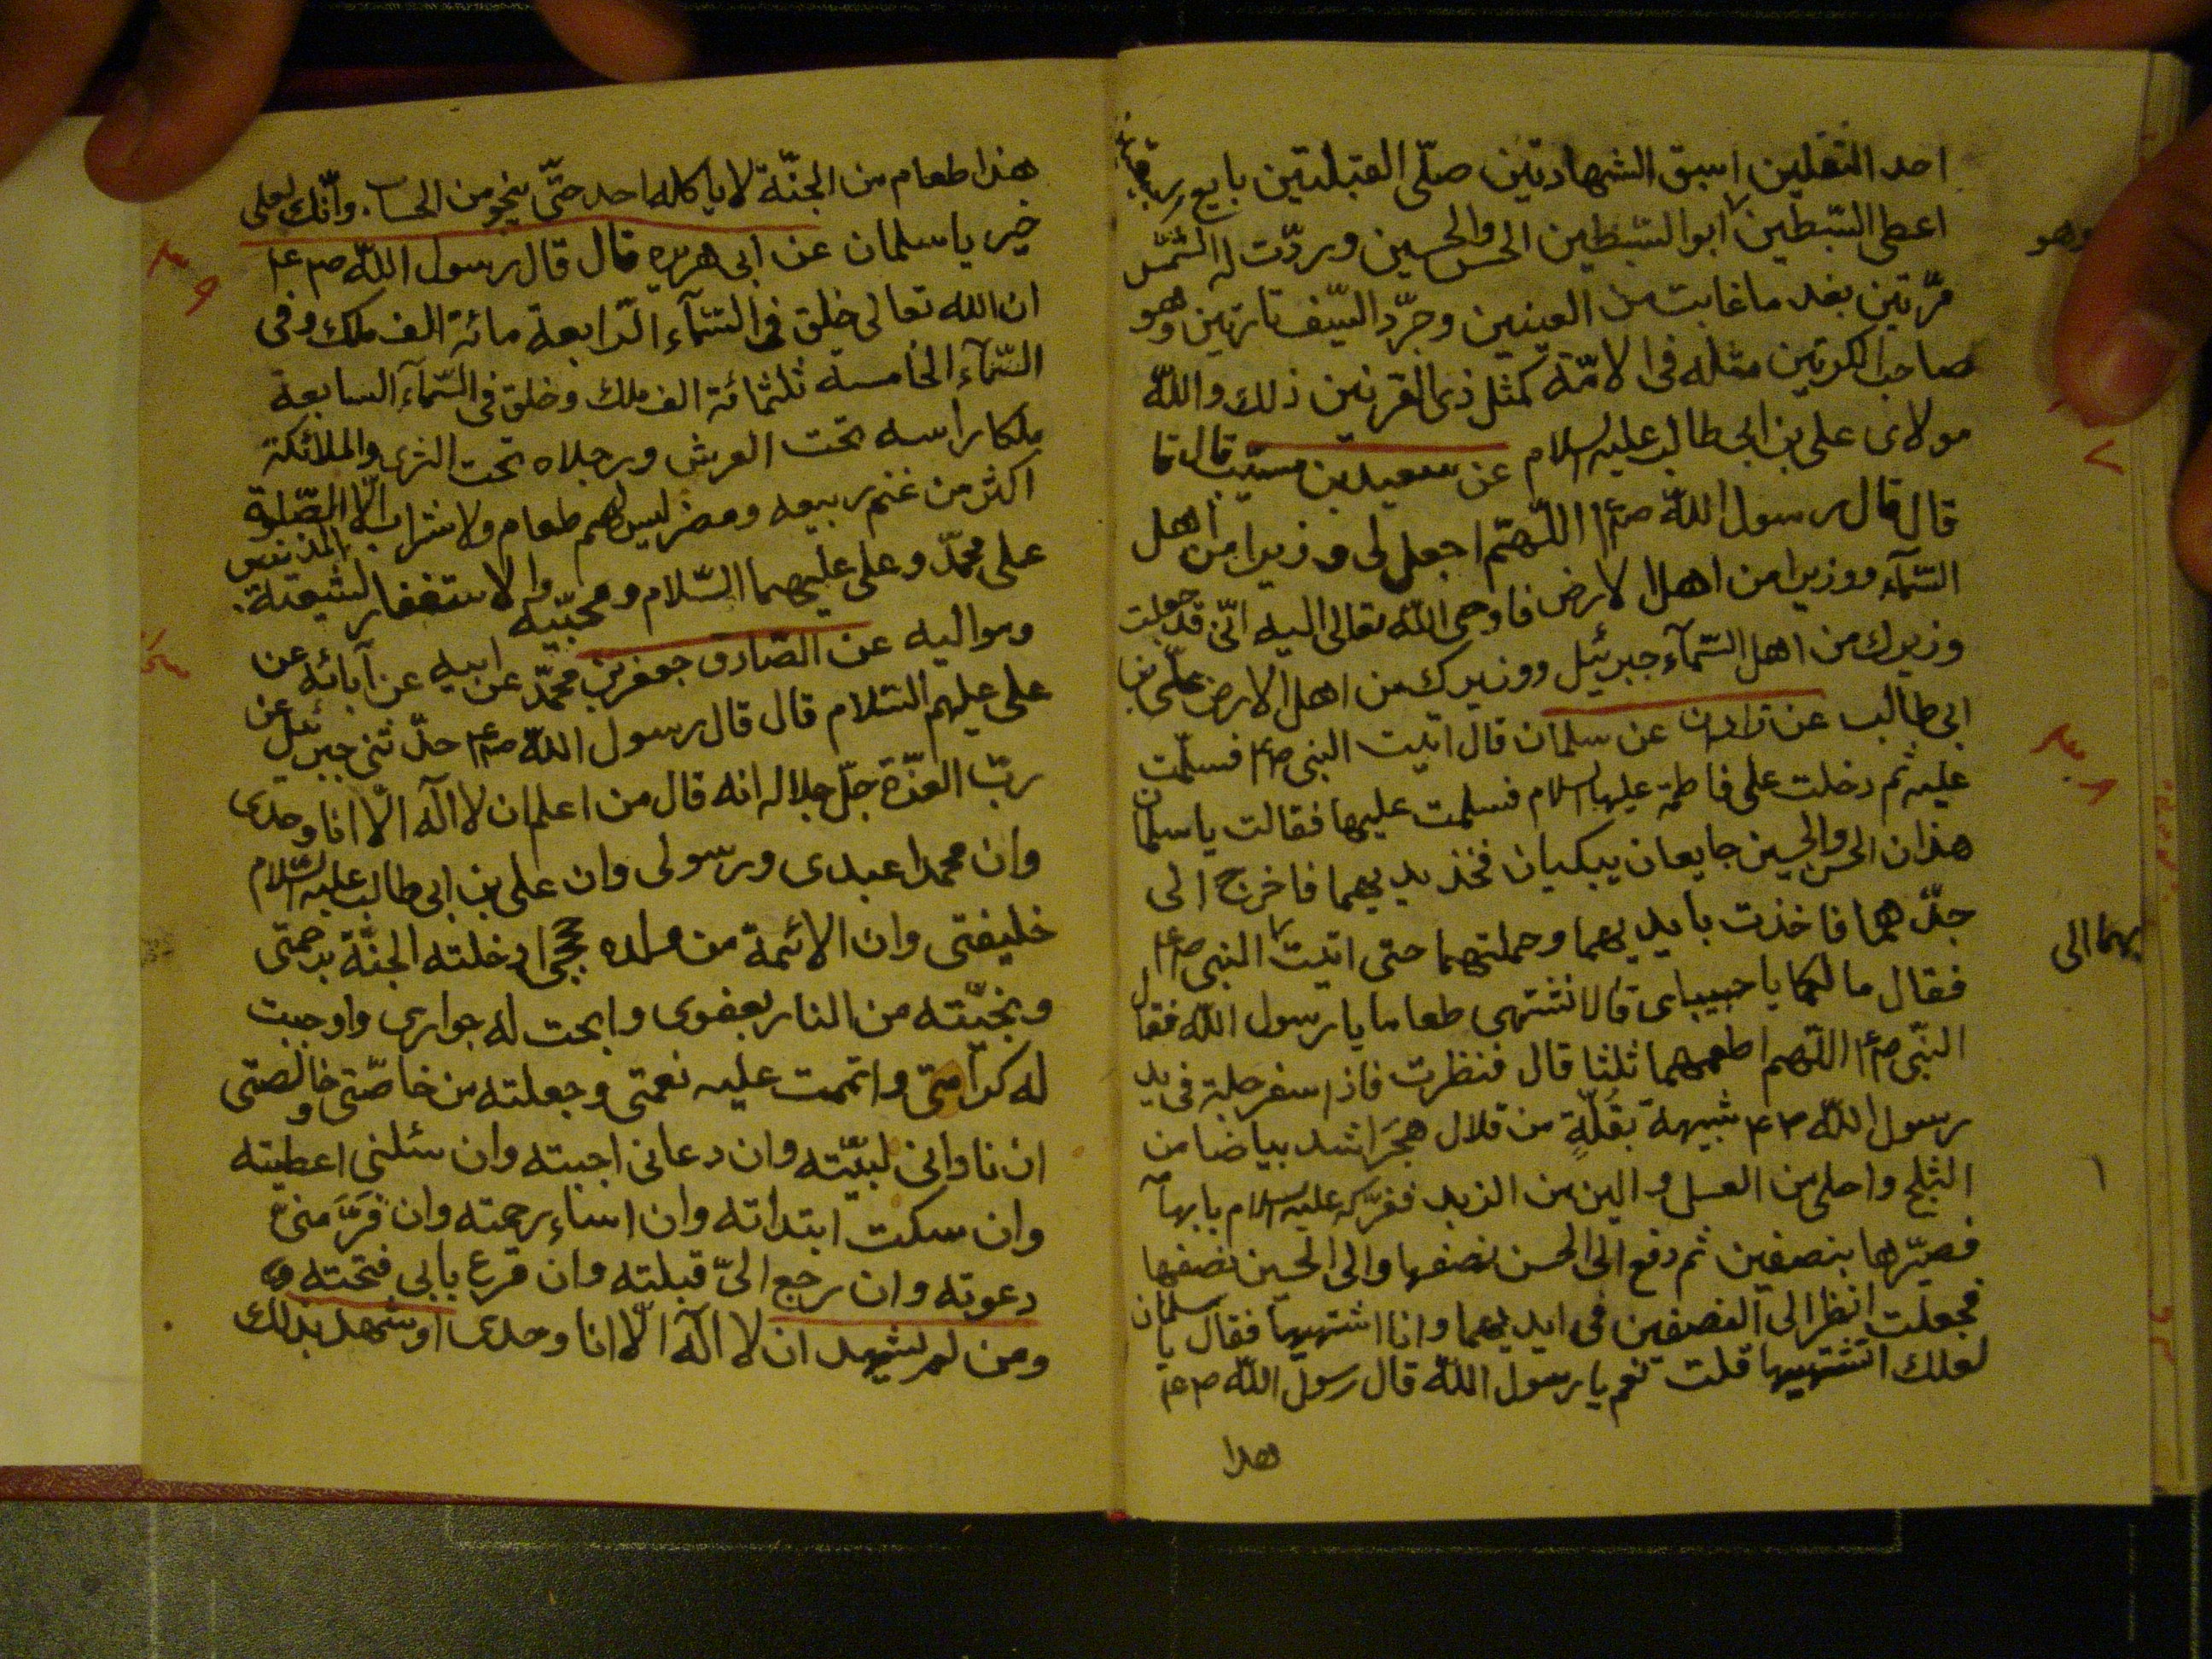 احد الثقلين اسبق الشهادتين صلّى القبلتين بايع
اعطى السّبطين ابو السّبطين الحسن والحسين وردّت له الشمس
وهو
مرّتين بعد ما غابت من العينين وجرّد السّيف تارتين وهو
صاحب الكرتين مثله فى الامّة كمثل ذى القرنين ذلك والله
مولاى على بن ابى طالب عليه السلام عن سعيد بن مسيّب قال قا
٧
قال قال رسول الله صلعم اللّهمّ اجعل لى وزيرا من اهل
السّمآء ووزيرا من اهل الارض فاوحى الله تعالى اليه انّى قد جعلت
وزيرك من اهل السّمآء جبرئيل ووزيرك من اهل الارض علىّ بن
ابى طالب عن زادان عن سلمان قال اتيت النبى صلعم فسلّمت
٣٨
عليه ثم دخلت على فاطمة عليها السلام فسلمت عليها فقالت يا سلمان
هذان الحسن والحسين جايعان يبكيان فخذ بيديهما فاخرج الى
جدّهما فاخذت بايديهما وحملتهما حتى اتيت النبى صلعم
بهما الى
فقال ما لكما يا حبيباى قالا نشتهى طعاما يا رسول الله فقال
النبّى صلعم اللّهم اطعمهما ثلثا قال فنظرت فاذا سفرجلة فى يد
رسول الله صلعم شبيهة بقلّةٍ من قلال هجَر اشد بياضا من
الثلج واحلى من العسل والين من الزبد ففركه عليه السلام بابهامه
فصيّرها بنصفين ثم دفع الى الحسن نصفها والى الحسين نصفها
فجعلت انظر الى النصفين فى ايديهما وانا اشتهيها فقال يا سلمان
لعلك اتشتهيها قلت نعم يا رسول الله قال رسول الله صلعم
هذا
هذا طعام من الجنّة لا ياكله احد حتّى ينجو من الحساب وانّك لعلى
خير يا سلمان عن ابى هريره قال قال رسول الله صلعم
٣٩
ان الله تعالى خلق فى السّمآء الرّابعة مائة الف ملك وفى
السّمآء الخامسة ثلثمائة الف ملك وخلق فى السّمآء السابعة
ملكا راسه تحت العرش ورجلاه تحت الثرى والملائكة
اكثر من غنم ربيعه ومضر ليس لهم طعام ولا شراب الّا الصّلوة
على محمّد وعلى عليهما السّلام ومحبّيه والاستغفار لشيعته المذنبين
ومواليه عن الصّادق جعفر بن محمّد عن ابيه عن آبائه عن
على عليهم السّلام قال قال رسول الله صلعم حدّثنى جبرئيل عن
ربّ العزّة جلّ جلاله انه قال من اعلم ان لا آله الّا انا وحدى
وان محمدا عبدى ورسولى وان على بن ابى طالب عليه السّلام
خليفتى وان الائمة من ولده حججى ادخلته الجنّة برحمتى
ونجيّته من النار بعفوى وابحت له جوارى واوجبت
له كرامتى واتممت عليه نعمتى وجعلته من خاصّتى وخالصتى
ان نادانى لبيّته وان دعانى اجبته وان سئلنى اعطيته
وان سكت ابتداته وان اساء رحمته وان فرَّ منى
دعوته وان رجع الىّ قبلته وان قرع بابى فتحته
ومن لم يشهد ان لا آله الّا انا وحدى او شهد بذلك